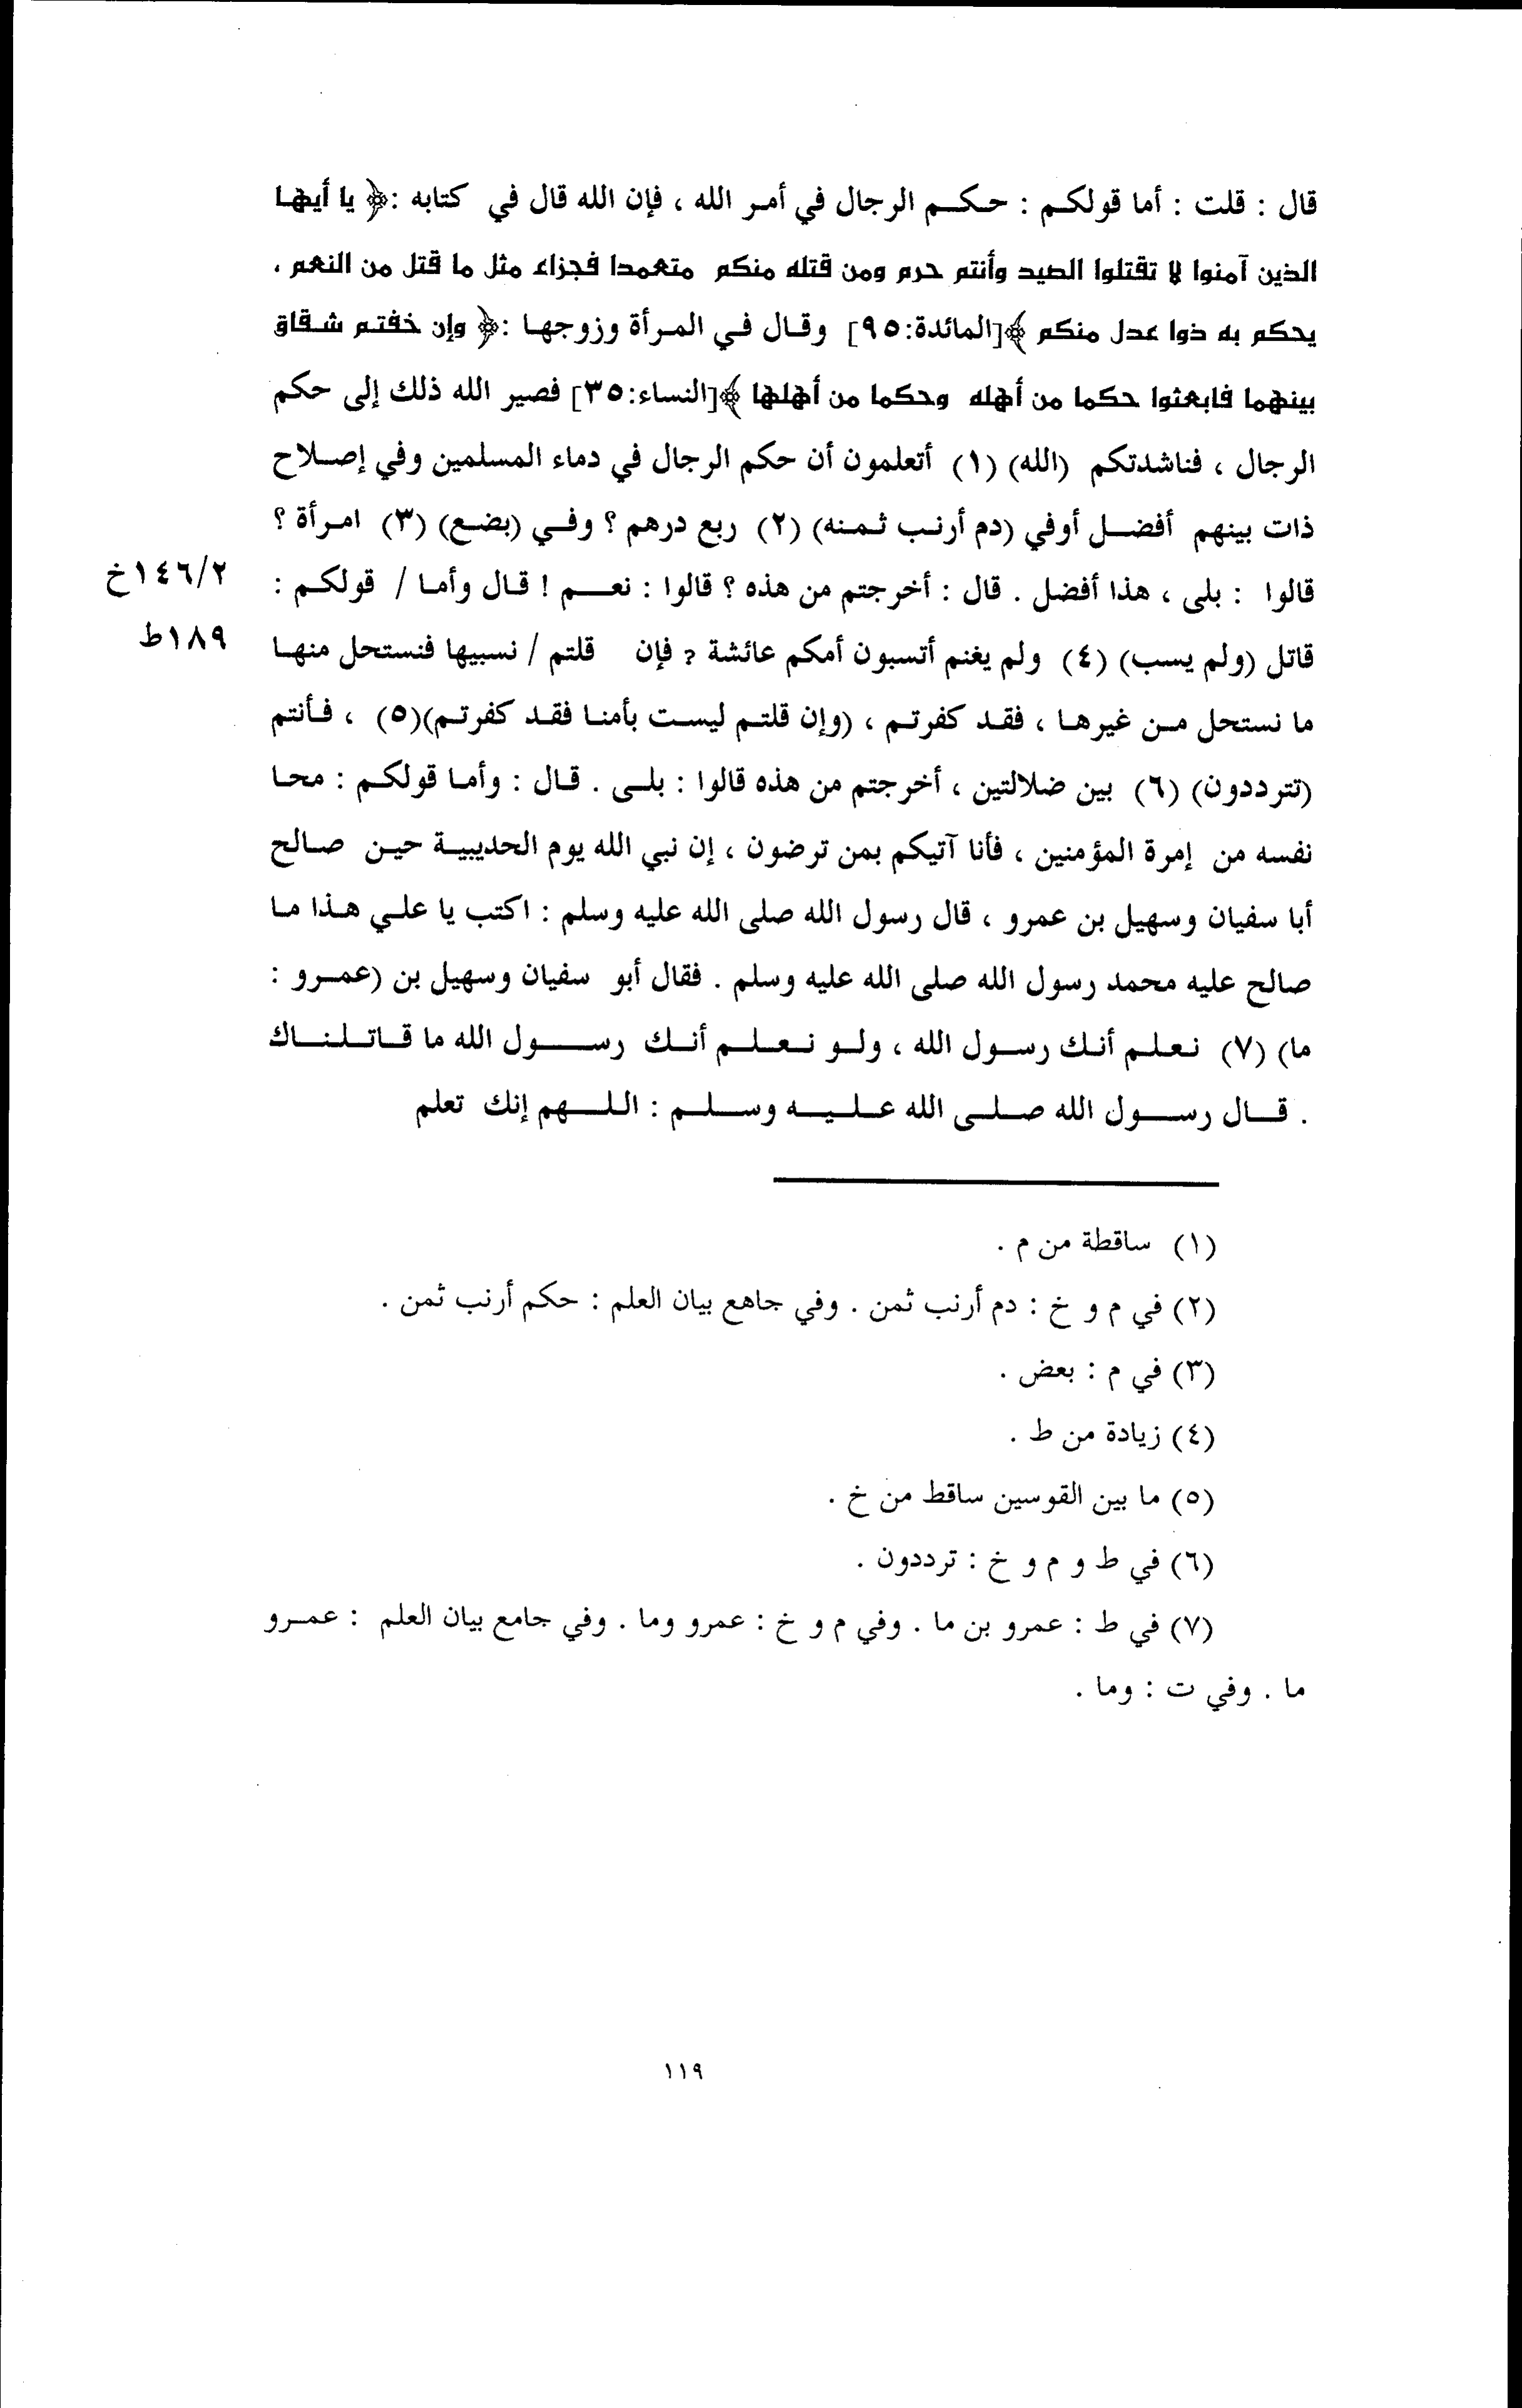 قال : قلت : أما قولكم : حكم الرجال في أمر الله ، فإن الله قال في كتابه :﴿ يا أيها
الذين آمنوا لا تقتلوا الصيد وأنتم حرم ومن قتله منكم متعمدا فجزاء مثل ما قتل من النعم ،
يحكم به ذوا عدل منكم ﴾[المائدة:٩٥] وقال في المرأة وزوجها :﴿ وإن خفتم شقاق
بينهما فابعثوا حكما من أهله وحكما من أهلها ﴾[النساء:٣٥] فصير الله ذلك إلى حكم
الرجال ، فناشدتكم (الله) (١) أتعلمون أن حكم الرجال في دماء المسلمين وفي إصلاح
ذات بينهم أفضل أوفي (دم أرنب ثمنه) (٢) ربع درهم ؟ وفي (بضع) (٣) امرأة ؟
قالوا : بلى ، هذا أفضل . قال : أخرجتم من هذه ؟ قالوا : نعم ! قال وأما / قولكم :
١٤٦/٢خ
قاتل (ولم يسب) (٤) ولم يغنم أتسبون أمكم عائشة ? فإن قلتم / نسبيها فنستحل منها
١٨٩ط
ما نستحل من غيرها ، فقد كفرتم ، (وإن قلتم ليست بأمنا فقد كفرتم)(٥) ، فأنتم
(تترددون) (٦) بين ضلالتين ، أخرجتم من هذه قالوا : بلى . قال : وأما قولكم : محا
نفسه من إمرة المؤمنين ، فأنا آتيكم بمن ترضون ، إن نبي الله يوم الحديبية حين صالح
أبا سفيان وسهيل بن عمرو ، قال رسول الله صلى الله عليه وسلم : اكتب يا علي هذا ما
صالح عليه محمد رسول الله صلى الله عليه وسلم . فقال أبو سفيان وسهيل بن (عمرو :
ما) (٧) نعلم أنك رسول الله ، ولو نعلم أنك رسول الله ما قاتلناك
. قال رسول الله صلى الله عليه وسلم : اللهم إنك تعلم
(١) ساقطة من م .
(٢) في م و خ : دم أرنب ثمن . وفي جاهع بيان العلم : حكم أرنب ثمن .
(٣) في م : بعض .
(٤) زيادة من ط .
(٥) ما بين القوسين ساقط من خ .
(٦) في ط و م و خ : ترددون .
(٧) في ط : عمرو بن ما . وفي م و خ : عمرو وما . وفي جامع بيان العلم : عمرو
ما . وفي ت : وما .
١١٩